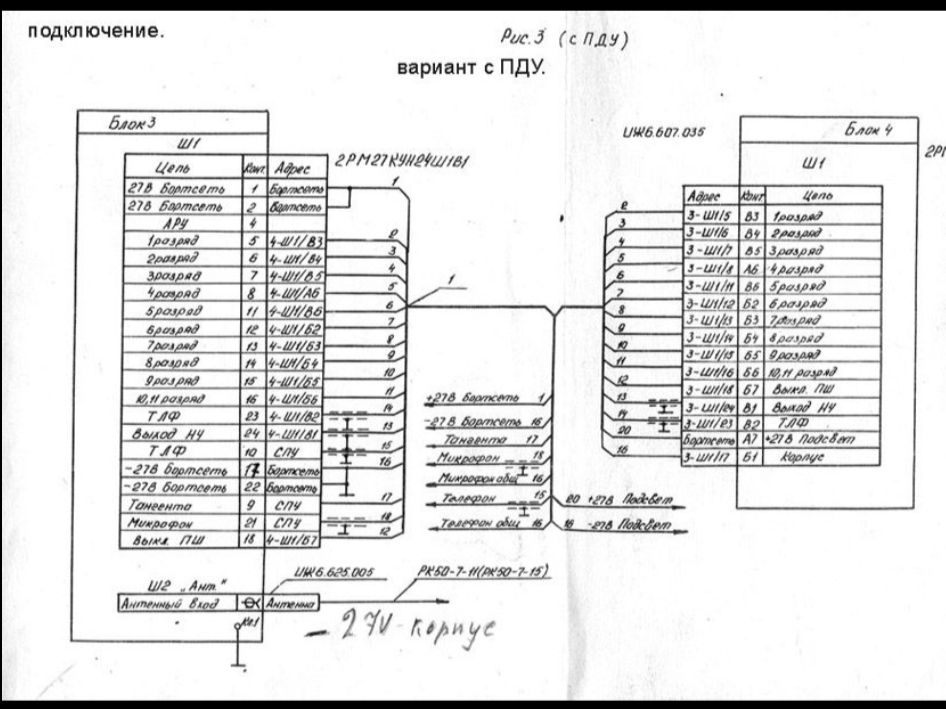 подключение.
Рис.3 (с ПДУ)
вариант с ПДУ.
Блок 3
Ш1
2РМ27КУН24Ш1В1
Цепь Конт. Адрес
27В Бортсеть 1 Бортсеть
27В Бортсеть 2 Бортсеть
АРУ 4
1разряд 5 4-Ш1/В3
2разряд 6 4-Ш1/В4
3разряд 7 4-Ш1/В5
4разряд 8 4-Ш1/А6
5разряд 11 4-Ш1/В6
6разряд 12 4-Ш1/Б2
7разряд 13 4-Ш1/Б3
8разряд 14 4-Ш1/Б4
9разряд 15 4-Ш1/Б5
10,11 разряд 16 4-Ш1/Б6
ТЛФ 23 4-Ш1/В2
Выход НЧ 24 4-Ш1/В1
ТЛФ 10 СПУ
-27В Бортсеть 17 Бортсеть
-27В Бортсеть 22 Бортсеть
Тангента 9 СПУ
Микрофон 21 СПУ
Выкл. ПШ 18 4-Ш1/Б7
1
2
3
4
5
6
7
8
9
10
11
14
13
15
16
17
18
12
1
Ш2 „Ант."
Антенный вход Антенна
ИЖ6.625.005
РК50-7-11(РК50-7-15)
Кл1
- 27V - корпус
+27В Бортсеть 1
-27В Бортсеть 16
Тангента 17
Микрофон 18
Микрофон общ 16
Телефон 15
Телефон общ 16
20 +27В Подсвет
16 -27В Подсвет
ИЖ6.607.035
Блок 4
Ш1
2РМ
2
3
4
5
6
7
8
9
10
11
12
13
14
20
16
Адрес Конт Цепь
3-Ш1/5 В3 1разряд
3-Ш1/6 В4 2разряд
3-Ш1/7 В5 3разряд
3-Ш1/8 А6 4разряд
3-Ш1/11 В6 5разряд
3-Ш1/12 Б2 6разряд
3-Ш1/13 Б3 7разряд
3-Ш1/14 Б4 8разряд
3-Ш1/15 Б5 9разряд
3-Ш1/16 Б6 10,11 разряд
3-Ш1/18 Б7 Выкл. ПШ
3-Ш1/24 В1 Выход НЧ
3-Ш1/23 В2 ТЛФ
Бортсеть А7 +27В Подсвет
3-Ш1/17 Б1 Корпус